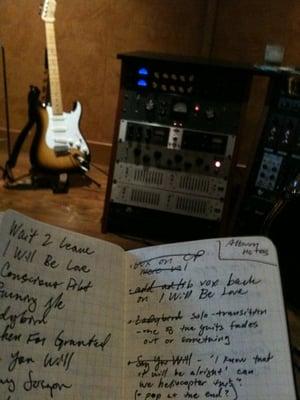 Wait 2 Leave
I Will Be Love
Conscious Pilot
Sunny
ken For Granted
You Will
Album
Notes
vox on EP
- add ad lib vox back
on I Will Be Love
- Ladybird solo - transition
- one of the guits fades
out or something
- Say You Will - "I know that
it will be alright" can
we helicopter this?
(- pop at the end?)